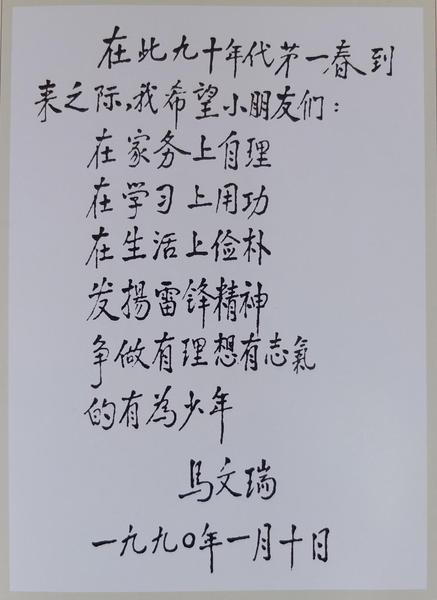 在此九十年代第一春到
来之际,我希望小朋友们:
在家务上自理
在学习上用功
在生活上俭朴
发揚雷锋精神
争做有理想有志氣
的有為少年
馬文瑞
一九九〇年一月十日